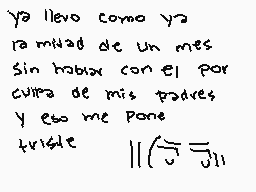 ya llevo como ya
la mitad de un mes
sin hablar con el por
culpa de mis padres
y eso me pone
triste